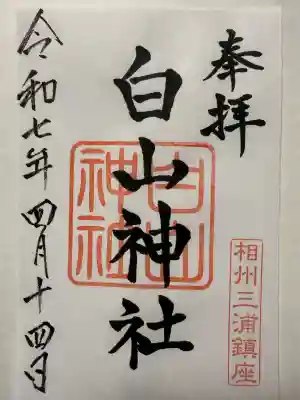 奉拝
白山神社
白山
神社
相州三浦鎮座
令和七年四月十四日